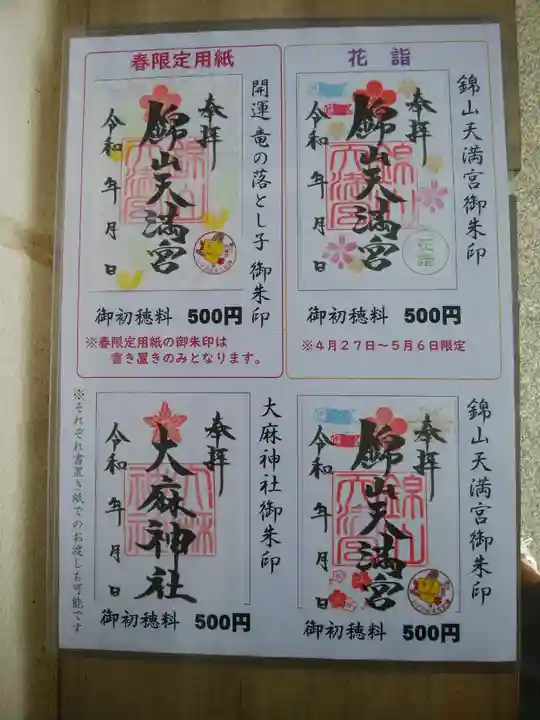 春限定用紙
奉拝
錦山天満宮
令和 年 月 日
開運竜の落とし子御朱印
御初穂料 500円
※春限定用紙の御朱印は
書き置きのみとなります。
花詣
奉拝
錦山天満宮
令和 年 月 日
花詣
錦山天満宮御朱印
御初穂料 500円
※4月27日～5月6日限定
奉拝
大麻神社
令和 年 月 日
大麻神社御朱印
御初穂料 500円
※それぞれ書置き紙でのお渡しも可能です
奉拝
錦山天満宮
令和 年 月 日
錦山天満宮御朱印
御初穂料 500円